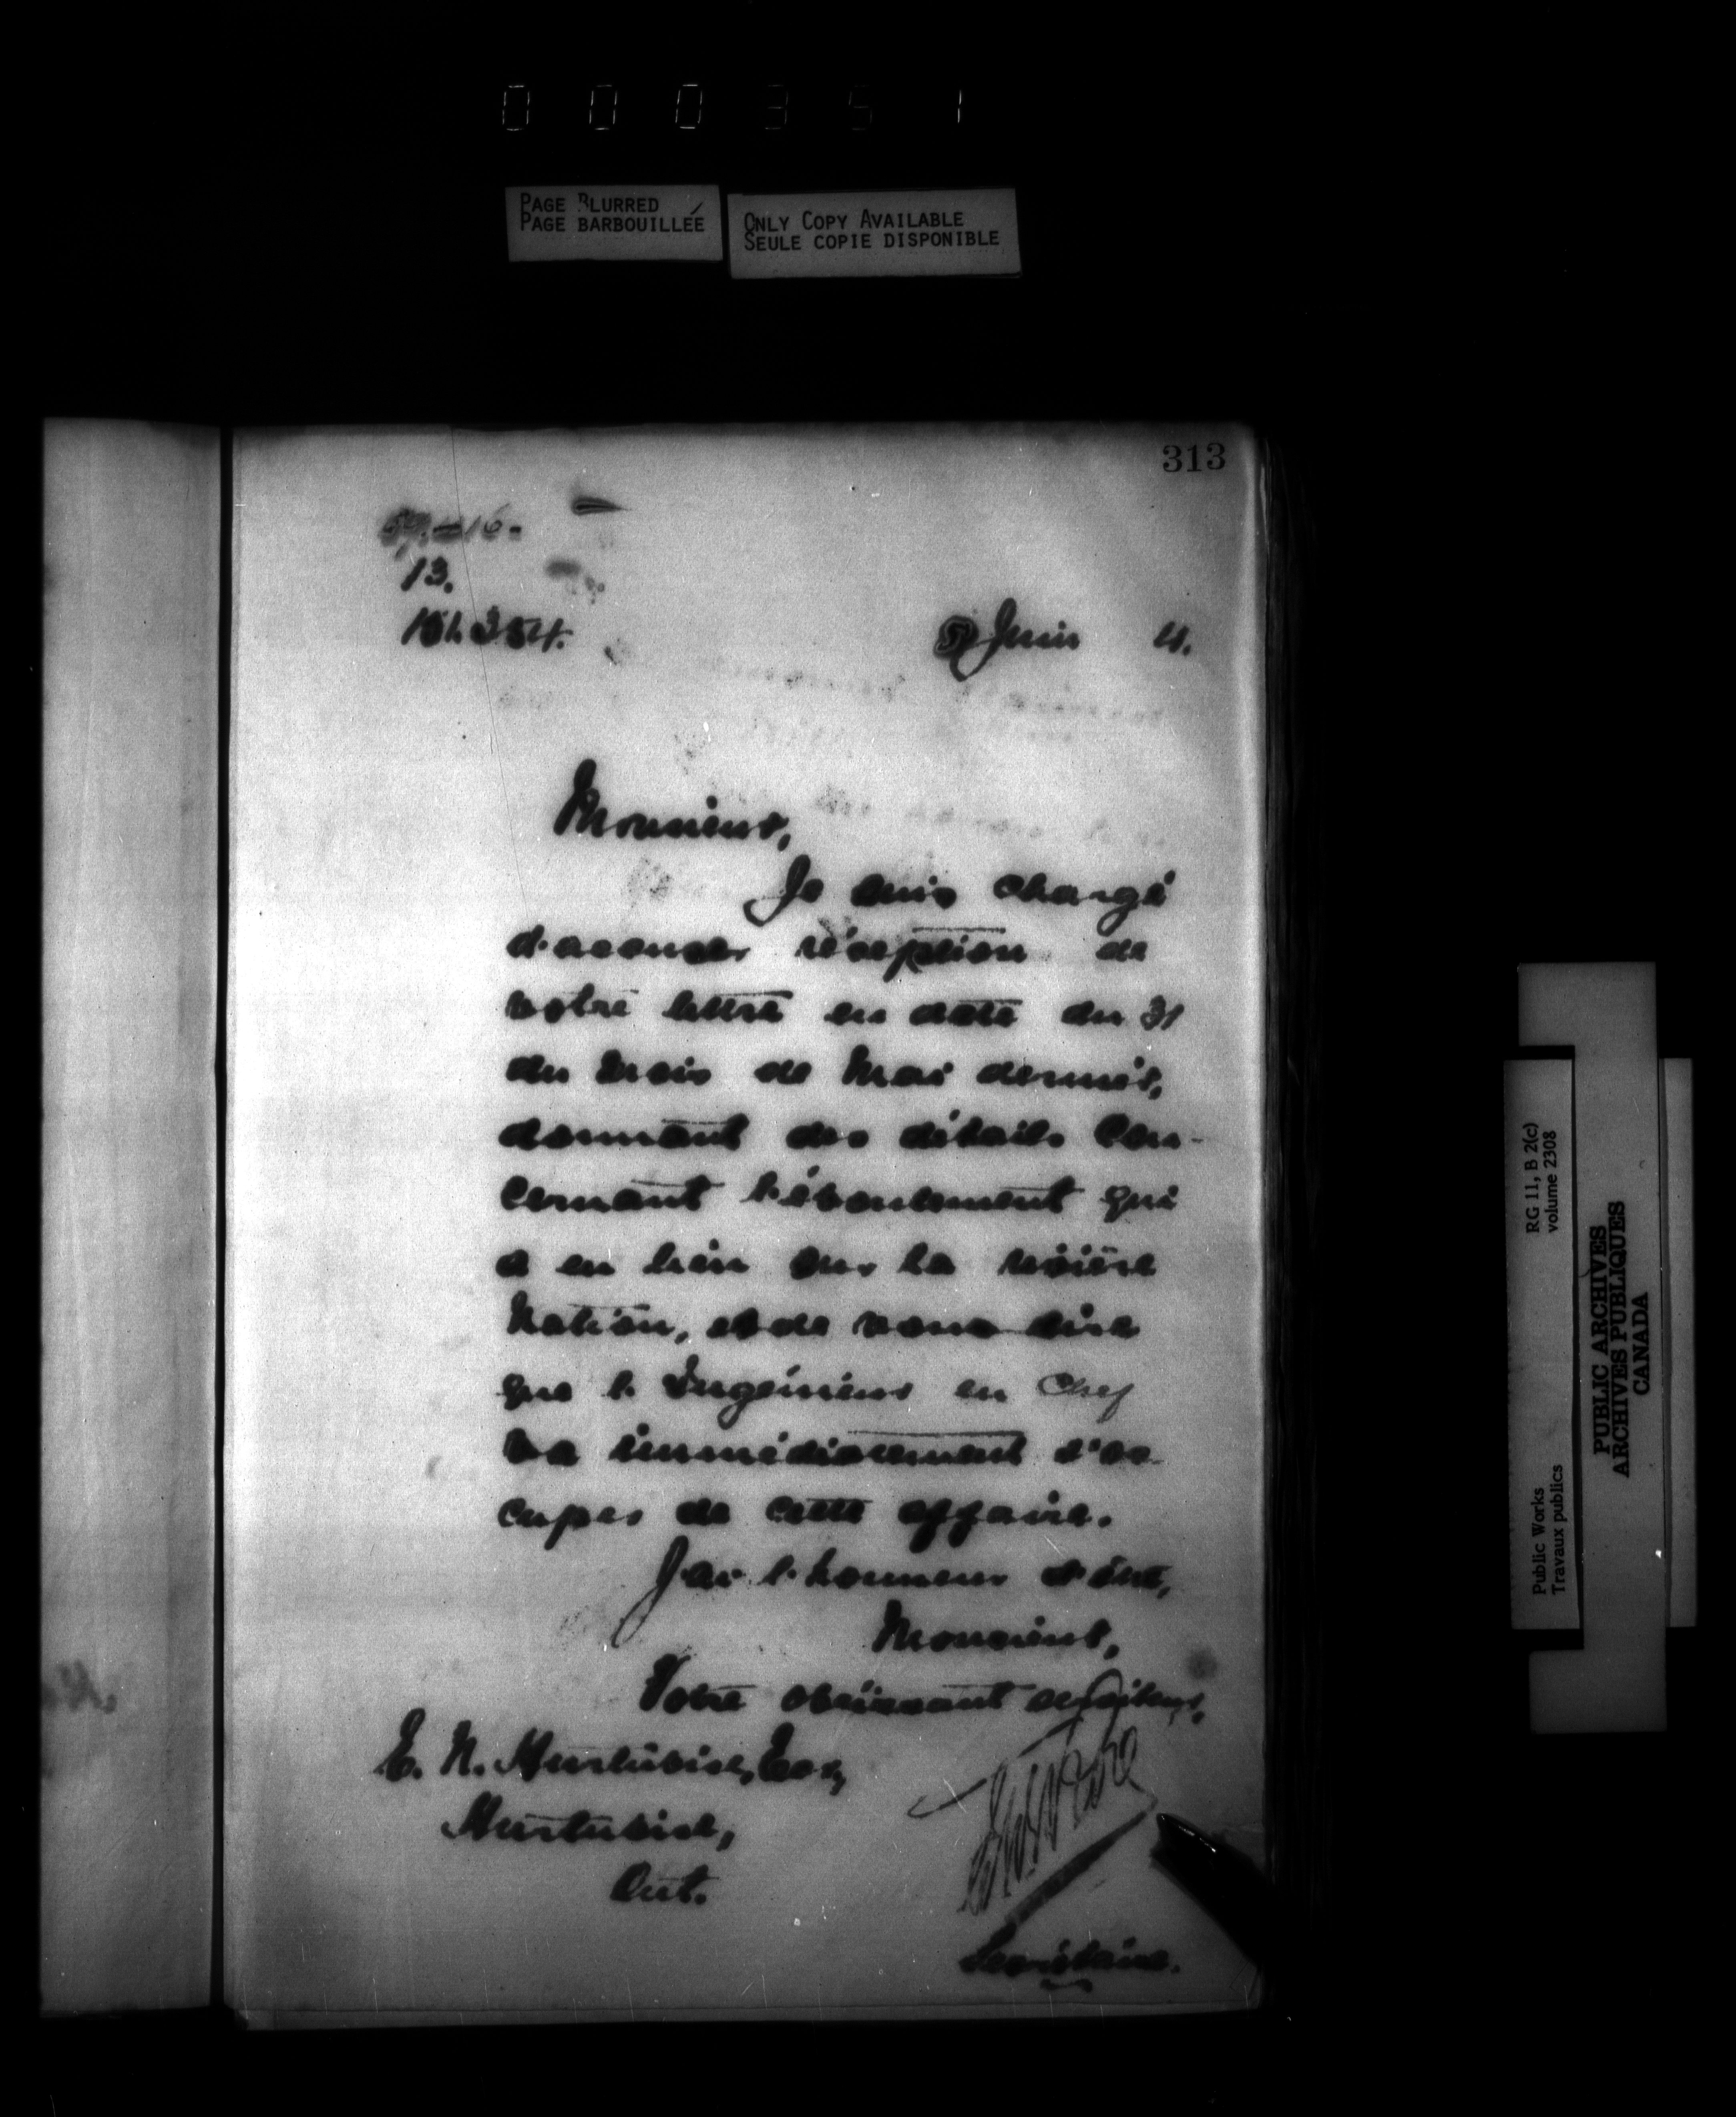 000351
PAGE BLURRED
PAGE BARBOUILLÉE
ONLY COPY AVAILABLE
SEULE COPIE DISPONIBLE
313
13.
Juin 4.
Monsieur,
Je suis chargé
d'accuser réception de
votre lettre en date du 31
du mois de Mai dernier,
donnant des détails con-
cernant l'éboulement qui
a eu lieu sur la rivière
Nation, et de vous dire
que l'Ingénieur en Chef
va immédiatement s'oc-
cuper de cette affaire.
J'ai l'honneur d'être,
Monsieur,
Votre obéissant serviteur,
E. N. Hurtubise, Esq,
Hurtubise,
Ont.
Secrétaire.
RG 11, B 2(c)
volume 2308
Public Works
Travaux publics
PUBLIC ARCHIVES
ARCHIVES PUBLIQUES
CANADA